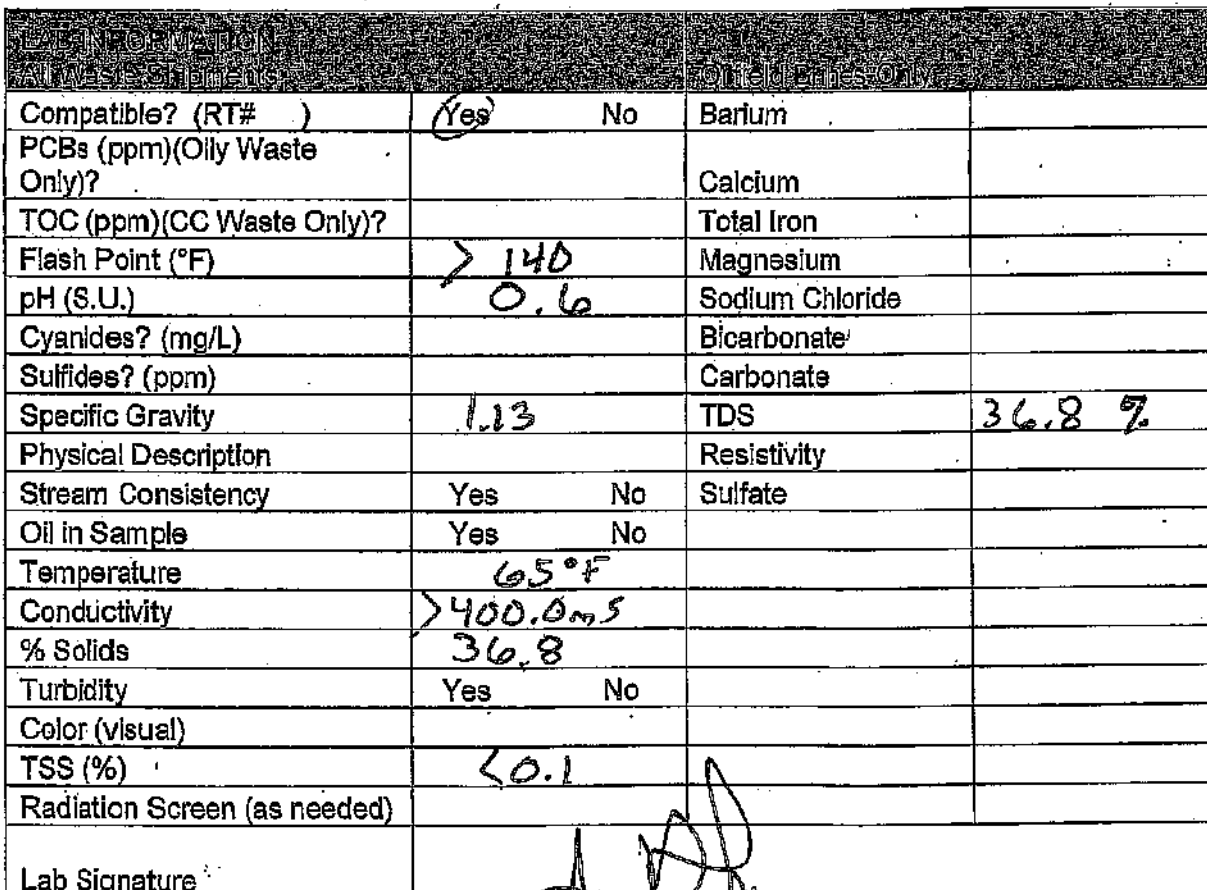 LAB INFORMATION
All Waste Shipments: Oilfield Brines Only:
Compatible? (RT# ) Yes No Barium
PCBs (ppm)(Oily Waste
Only)? Calcium
TOC (ppm)(CC Waste Only)? Total Iron
Flash Point (°F) > 140 Magnesium
pH (S.U.) 0.6 Sodium Chloride
Cyanides? (mg/L) Bicarbonate
Sulfides? (ppm) Carbonate
Specific Gravity 1.13 TDS 36.8 %
Physical Description Resistivity
Stream Consistency Yes No Sulfate
Oil in Sample Yes No
Temperature 65°F
Conductivity >400.0mS
% Solids 36.8
Turbidity Yes No
Color (visual)
TSS (%) <0.1
Radiation Screen (as needed)
Lab Signature